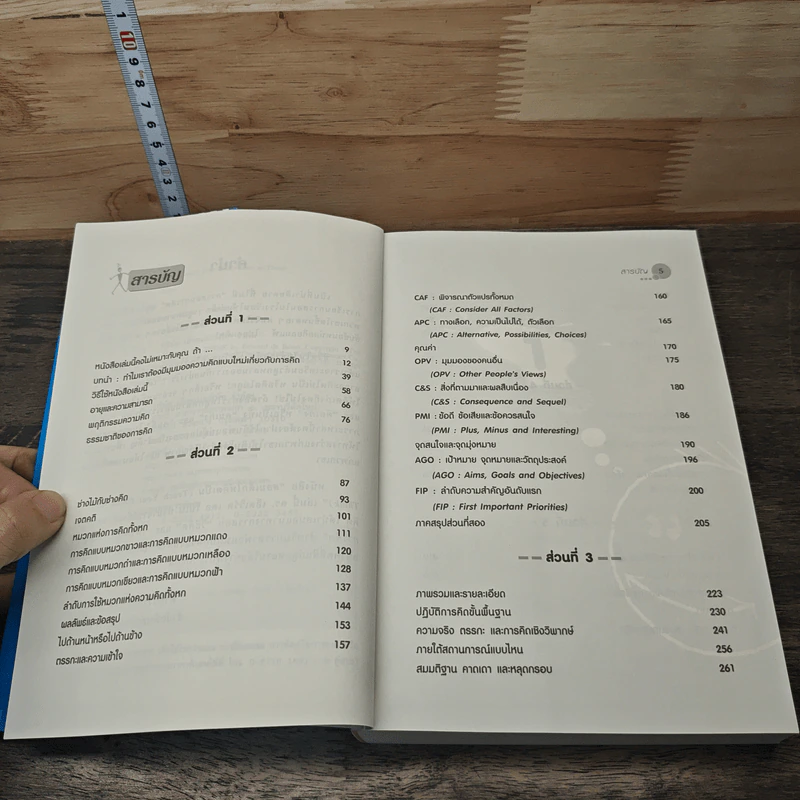 1
10
9
8
7
6
5
4
3
2
สารบัญ
ส่วนที่ 1
หนังสือเล่มนี้คงไม่เหมาะกับคุณ ถ้า ... 9
บทนำ : ทำไมเราต้องมีมุมมองความคิดแบบใหม่เกี่ยวกับการคิด 12
วิธีใช้หนังสือเล่มนี้ 39
อายุและความสามารถ 58
พฤติกรรมความคิด 66
ธรรมชาติของการคิด 76
ส่วนที่ 2
ช่างไม้กับช่างคิด 87
เจตคติ 93
หมวกแห่งการคิดทั้งหก 101
การคิดแบบหมวกขาวและการคิดแบบหมวกแดง 111
การคิดแบบหมวกดำและการคิดแบบหมวกเหลือง 120
การคิดแบบหมวกเขียวและการคิดแบบหมวกฟ้า 128
ลำดับการใช้หมวกแห่งความคิดทั้งหก 137
ผลลัพธ์และข้อสรุป 144
ไปด้านหน้าหรือไปด้านข้าง 153
ตรรกะและความเข้าใจ 157
สารบัญ 5
CAF : พิจารณาตัวแปรทั้งหมด 160
(CAF : Consider All Factors)
APC : ทางเลือก, ความเป็นไปได้, ตัวเลือก 165
(APC : Alternative, Possibilities, Choices)
คุณค่า 170
OPV : มุมมองของคนอื่น 175
(OPV : Other People's Views)
C&S : สิ่งที่ตามมาและผลสืบเนื่อง 180
(C&S : Consequence and Sequel)
PMI : ข้อดี ข้อเสียและข้อควรสนใจ 186
(PMI : Plus, Minus and Interesting)
จุดสนใจและจุดมุ่งหมาย 190
AGO : เป้าหมาย จุดหมายและวัตถุประสงค์ 196
(AGO : Aims, Goals and Objectives)
FIP : ลำดับความสำคัญอันดับแรก 200
(FIP : First Important Priorities)
ภาคสรุปส่วนที่สอง 205
ส่วนที่ 3
ภาพรวมและรายละเอียด 223
ปฏิบัติการคิดขั้นพื้นฐาน 230
ความจริง ตรรกะ และการคิดเชิงวิพากษ์ 241
ภายใต้สถานการณ์แบบไหน 256
สมมติฐาน คาดเดา และหลุดกรอบ 261